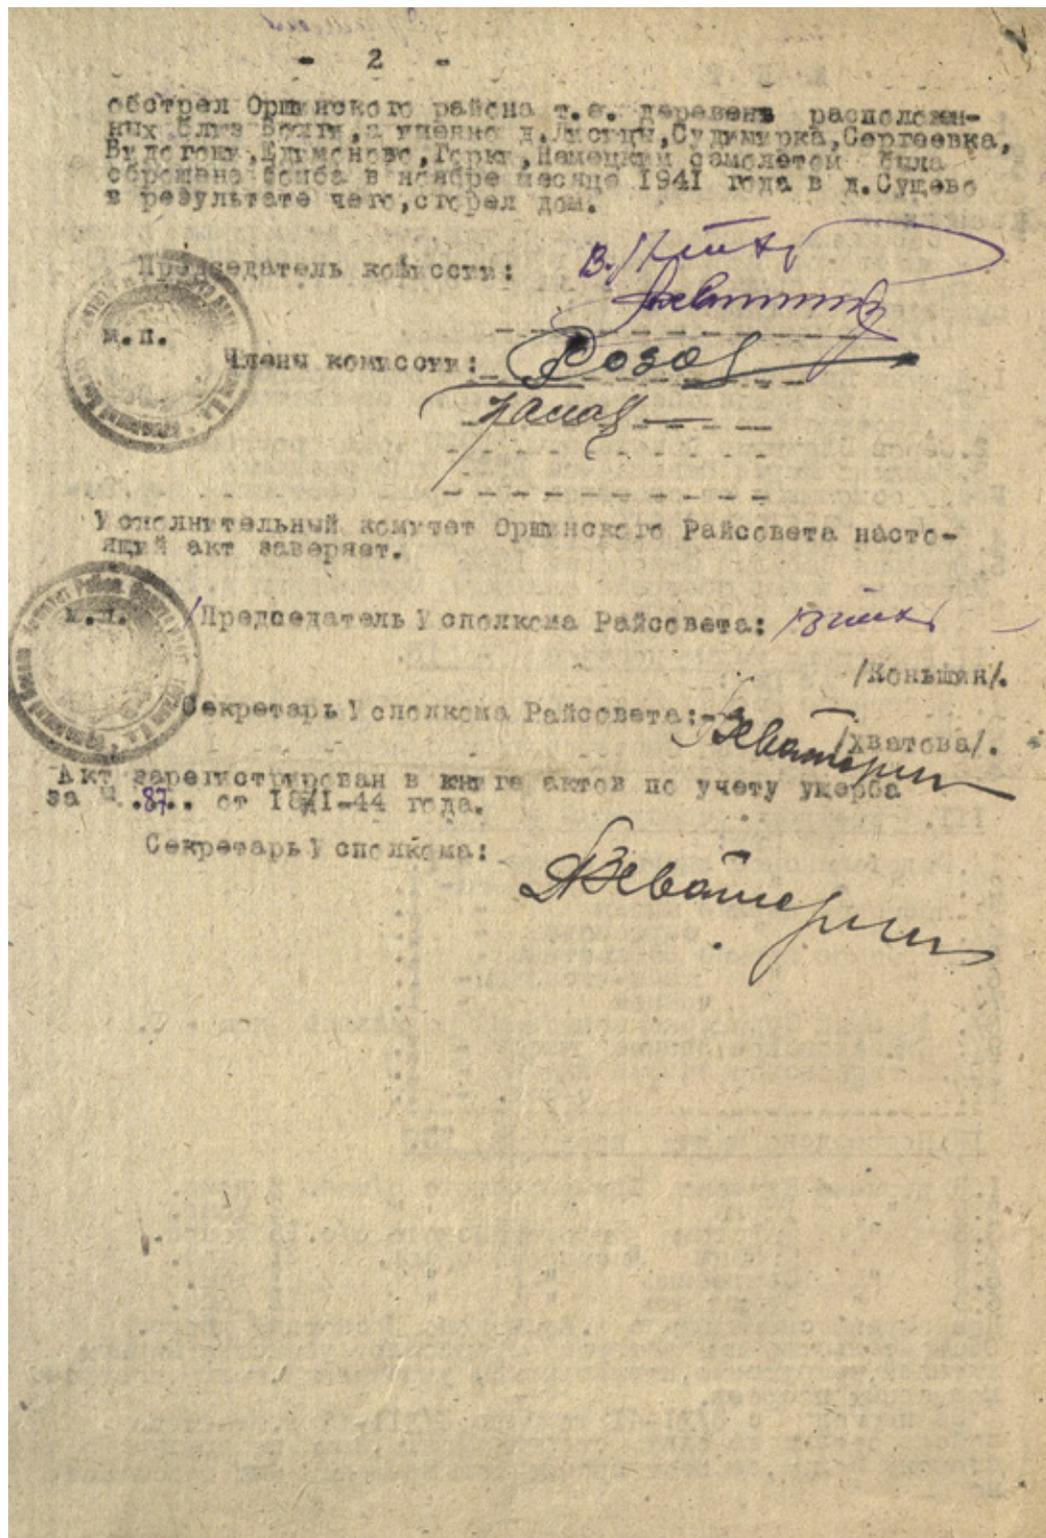 - 2 -
обстрел Оршинского района т.е. деревень расположен-
ных близ Волги, а именно д.Лисицы, Судимирка, Сергеевка,
Видогощи, Едимоново, Горки, Немецким самолетом была
сброшена бомба в ноябре месяце 1941 года в д.Сущево
в результате чего, сгорел дом.
Председатель комиссии:
м.п.
Члены комиссии:
Розов
Исполнительный комитет Оршинского Райсовета насто-
ящий акт заверяет.
м.п. /Председатель Исполкома Райсовета:
/Коньшин/.
Секретарь Исполкома Райсовета:-
/Хватова/.
Акт зарегистрирован в книге актов по учету ущерба
за №.87.. от года.
Секретарь Исполкома: